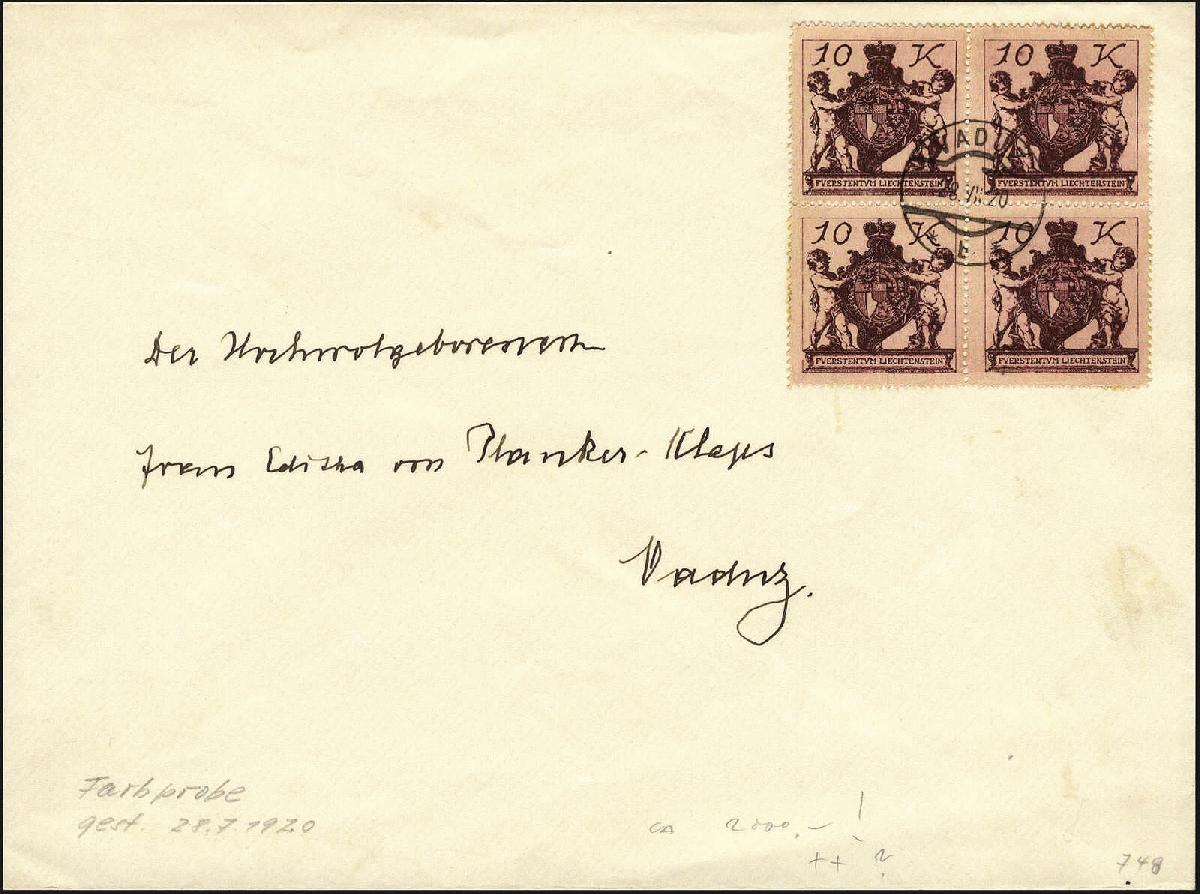 10 K 10 K
FVERSTENTVM LIECHTENSTEIN FVERSTENTVM LIECHTENSTEIN
VADUZ
28.VII.20
10 K 10 K
* B *
FVERSTENTVM LIECHTENSTEIN FVERSTENTVM LIECHTENSTEIN
Der Hochwolgeborenen
Frau Editha von Planker-Klaps
Vaduz.
Farbprobe
gest. 28.7.1920
ca 2000.- !
++ ?
748